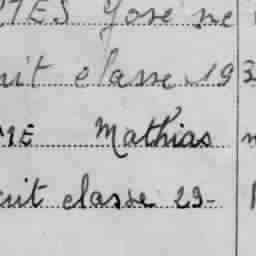 TES Jose né
uit classe 193
ME Mathias n
cuit classe 29-